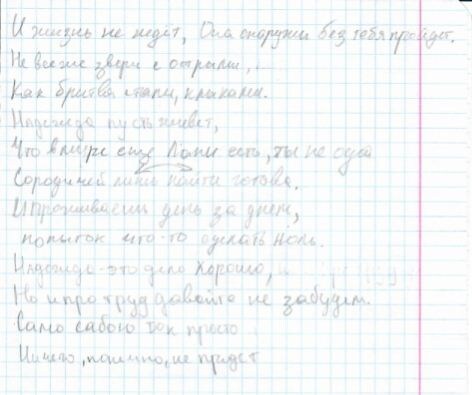 И жизнь не ждёт, Она снаружи без тебя пройдет.
Не все же звери с острыми,
Как бритва стали, клыками.
Надежда пусть живет,
Что в мире еще Лани есть, ты не одна
Сородичей лишь найти готова.
И проживаешь день за днем,
попыток что-то сделать ноль.
Надежда - это дело хорошо,
Но и про труд давайте не забудем.
Само сабою так просто
Ничего, понятно, не придет